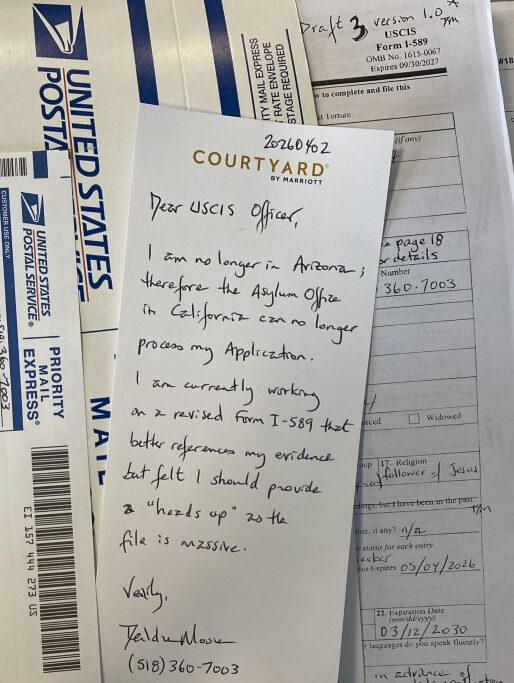 UNITED STATES
POSTA
MAIL
ITY MAIL EXPRESS
RATE ENVELOPE
STAGE REQUIRED
CUSTOMER USE ONLY
UNITED STATES
POSTAL SERVICE®
PRIORITY
MAIL
EXPRESS®
360-7003
EI 157 444 273 US
20260402
COURTYARD®
BY MARRIOTT
Dear USCIS Officer,
I am no longer in Arizona;
therefore the Asylum Office
in California can no longer
process my Application.
I am currently working
on a revised Form I-589 that
better references my evidence
but felt I should provide
a "heads up" as the
file is massive.
Verily,
(518) 360-7003
Draft 3 version 1.0
USCIS
Form I-589
OMB No. 1615-0067
Expires 09/30/2027
w to complete and file this
t Torture.
(if any)
page 18
r details
Number
360-7003
rced
Widowed
oup
17. Religion
follower of Jesus
dings, but I have been in the past.
ber, if any? n/a
r status for each entry
us Expires 05/04/2026
22. Expiration Date
(mm/dd/yyyy)
03/12/2030
r languages do you speak fluently?
in advance of
#18